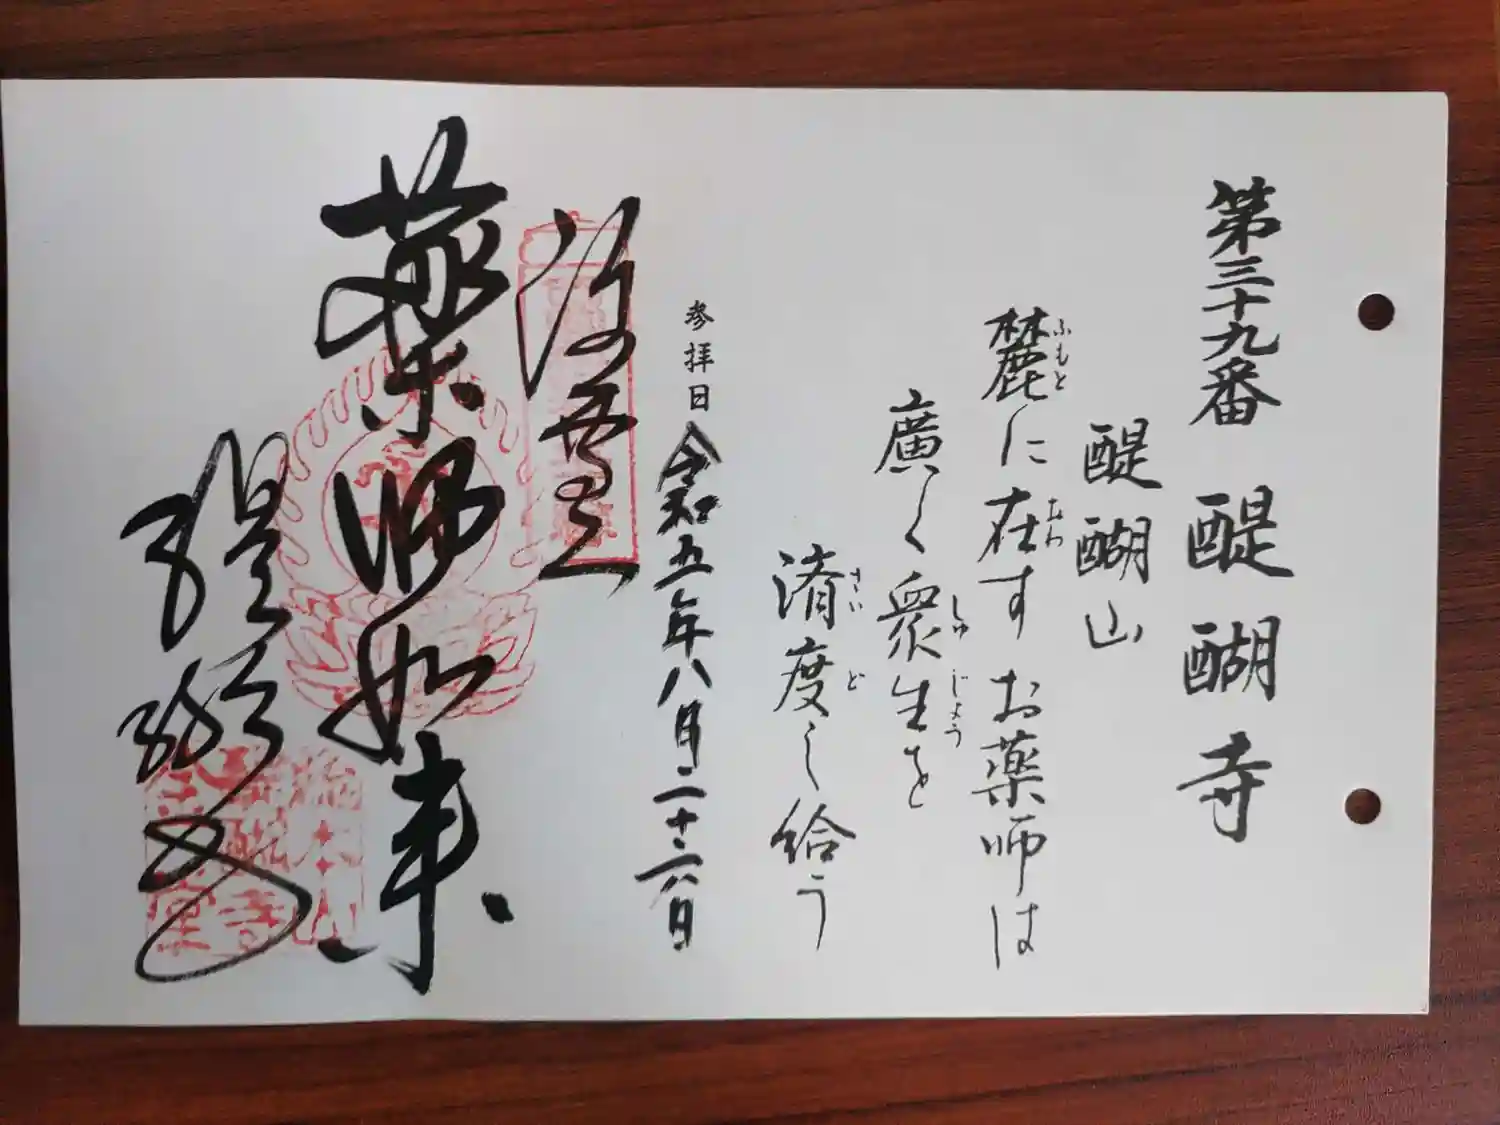 第三十九番 醍醐寺
醍醐山
麓に在す お薬師は
ふもと おわ
廣く 衆生を
しゅ じょう
済度し給う
さい ど
参拝日 令和五年八月二十六日
薬師如来
醍醐寺